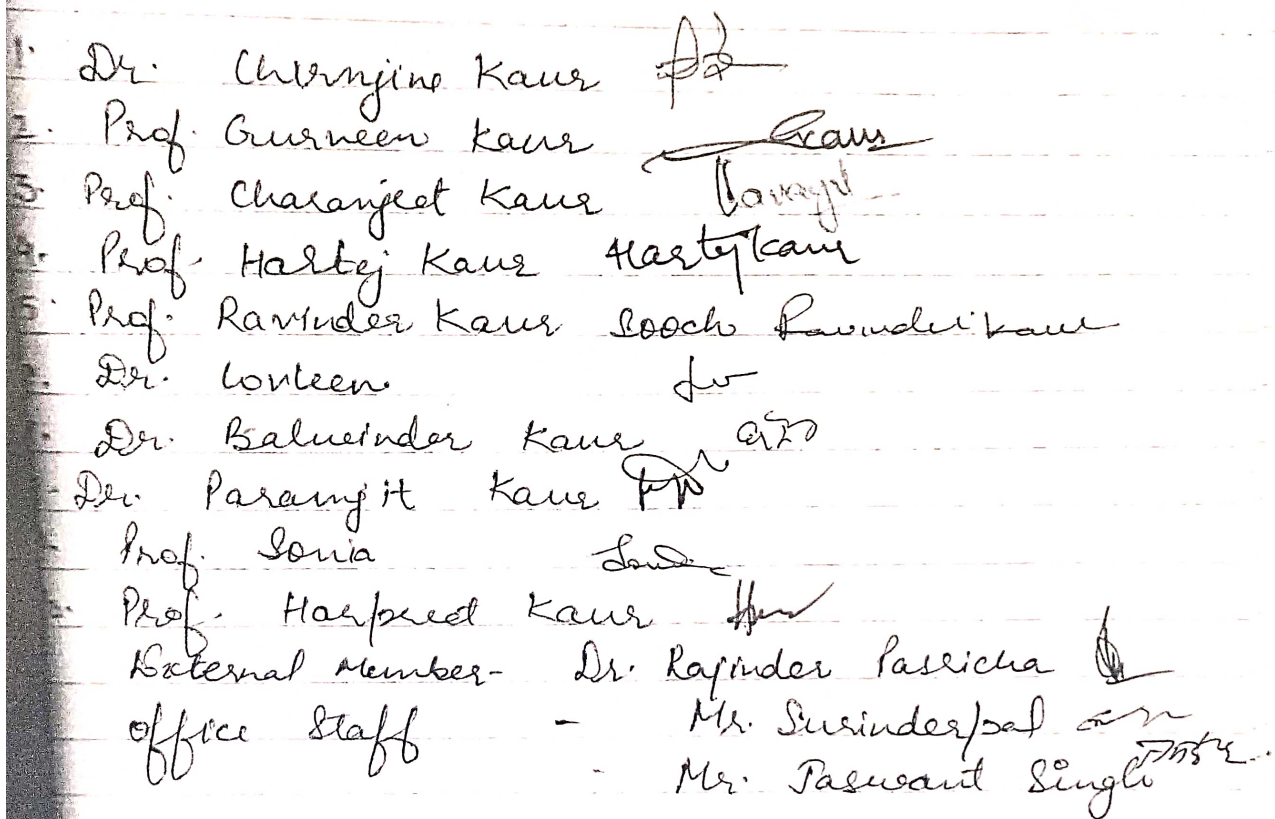 1. Dr. Chirnjine Kaur
2. Prof. Gurneen Kaur Gkaur
3. Prof. Charanjeet Kaur
4. Prof. Hartej Kaur Hartej kaur
5. Prof. Ravinder Kaur Sooch Ravinder kaur
Dr. Lovleen
Dr. Balwinder Kaur
Dr. Paramjit Kaur
Prof. Sonia
Prof. Harpreet Kaur
External Member- Dr. Rajinder Pasricha
Office Staff - Mr. Surinderpal
- Mr. Jaswant Singh